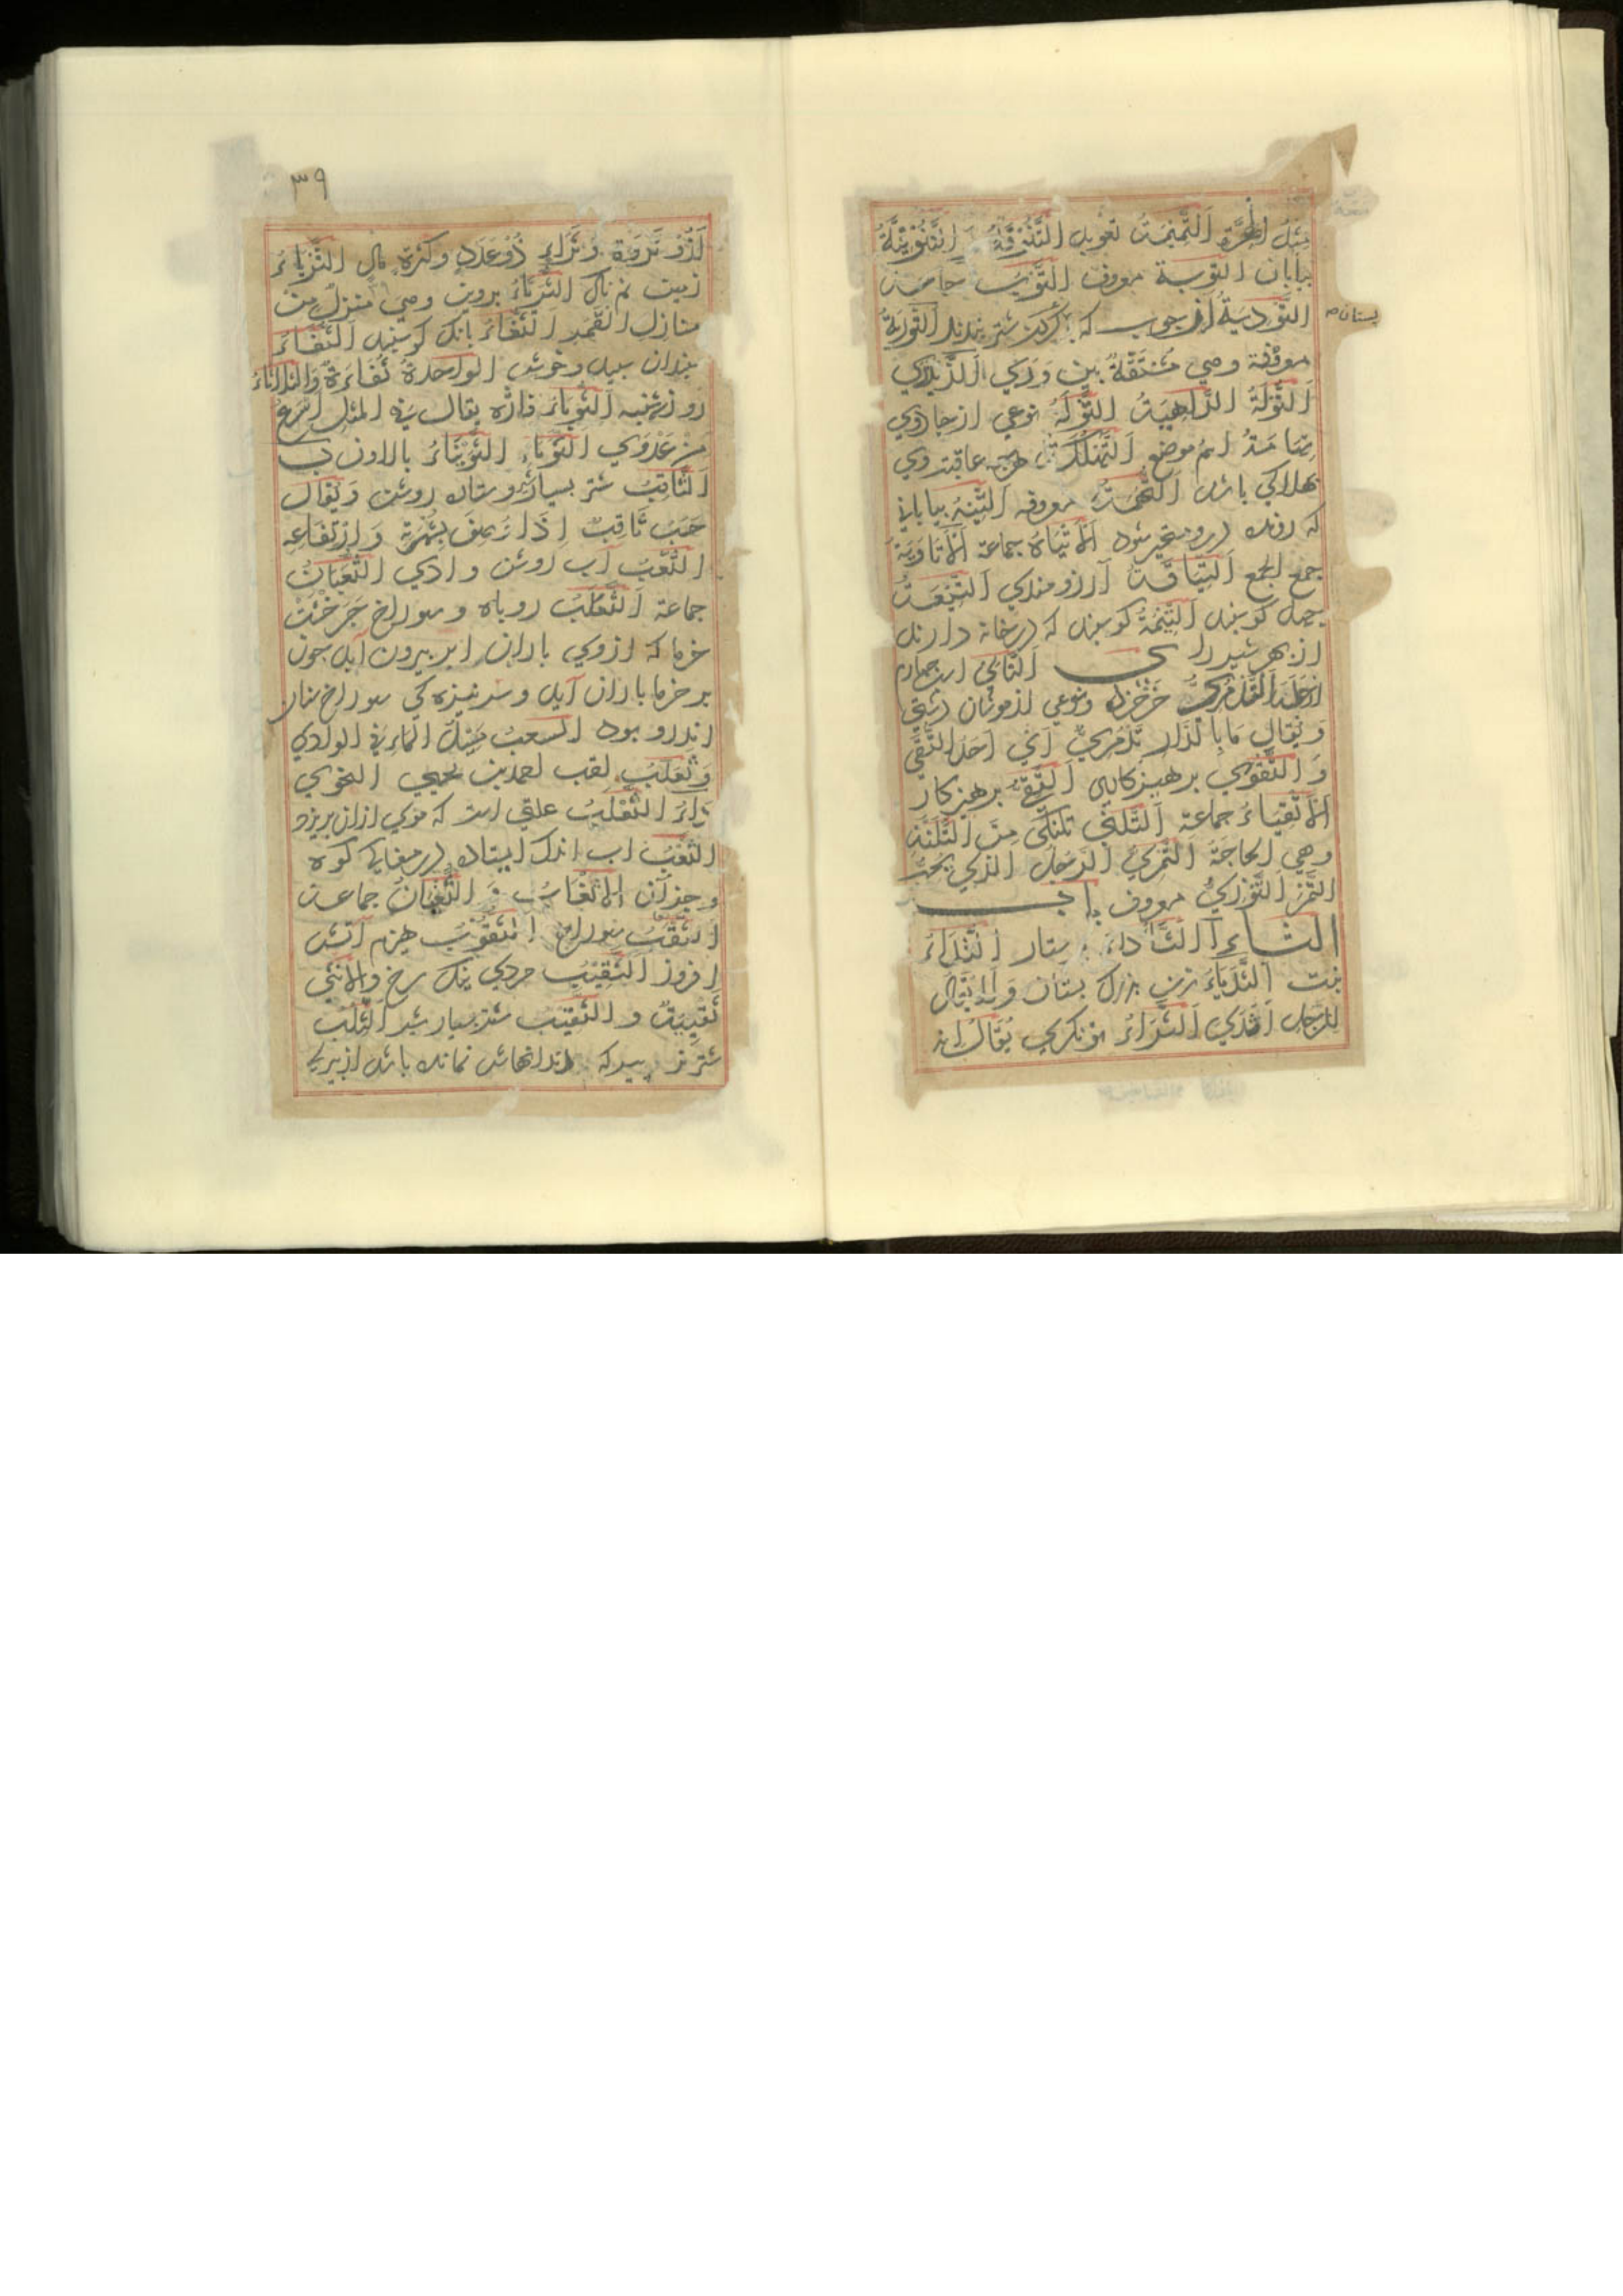 مثل الحرة التميمة تعويذ التنوفة و التنوفية
بيابان التوبة معروف
التودية آن چوب كه بر شتر بندند التورية
معروفة وهي مشتقة بين وري الزند
التولة الداهية التولة نوعي از جادوي
اسم موضع التهلكة هرچ عاقبت وي
بهلاكي باشد التهمة معروفه التيه بياباني
كه رونده درو متحير شود الأتياه جماعة الأتاويه
جمع الجمع التياقة آرزومندي التيعة
چهل كوسفند التيمة كوسفند كه در خانه دارند
از بهر شير را ى التالي اسب چهارم
ويقال ما بالدار تدمري اي احد التقى
و التقوى برهيزكاري التقي برهيزكار
الأتقياء جماعة التلنى تلنى من التلنة
وهي الحاجة التمري الرجل الذي يحب
التمر التوزي معروف باب
الثاء الثأداء پرستار الثأداء
بنت الثدياء زن بزرك بستان ولا يقال
للرجل اثدى الثراء توانكري يقال انه
بستان صح
٣٩
لذو ثروة وثراء ذو عدد وكثرة مال الثرياء
زمين نمناك الثرياء پروين وهي منزل من
منازل القمر الثغاء بانك كوسفند الثفاء
سپندان سپيد و خوش الواحدة ثفاءة والثلاثاء
روز سه شنبه الثوباء فاژه يقال في المثل اسرع
من عدوى الثوباء
الثاقب شتر بسيار شير و ستاره روشن ويقال
حسب ثاقب اذا وصف بشهرة وارتفاعه
الثعب آب روشن وادي الثعبان
جماعة الثعلب روباه و سوراخ چرخشت
خرما كه از وي باران را بر بيرون آيد چون
بر خرما باران آيد و سر نيزه كي سوراخ سنان
اندرو بود الثعب مسيل الماء في الوادي
وثعلب لقب احمد بن يحيى النحوي
داء الثعلب علتي است كه موي ازان بريزد
الثغب آب اندك ايستاده در مغاكي كوه
و جز آن الأثغاب و الثغبان جماعت
الثقب سوراخ الثقوب هيزم آتش
افروز الثقيب مردي نيك سرخ والأنثى
ثقيبة و الثقيب شتر بسيار شير الثلب
شتر نر پير كه دندانهاش نمانده باشد از پيري